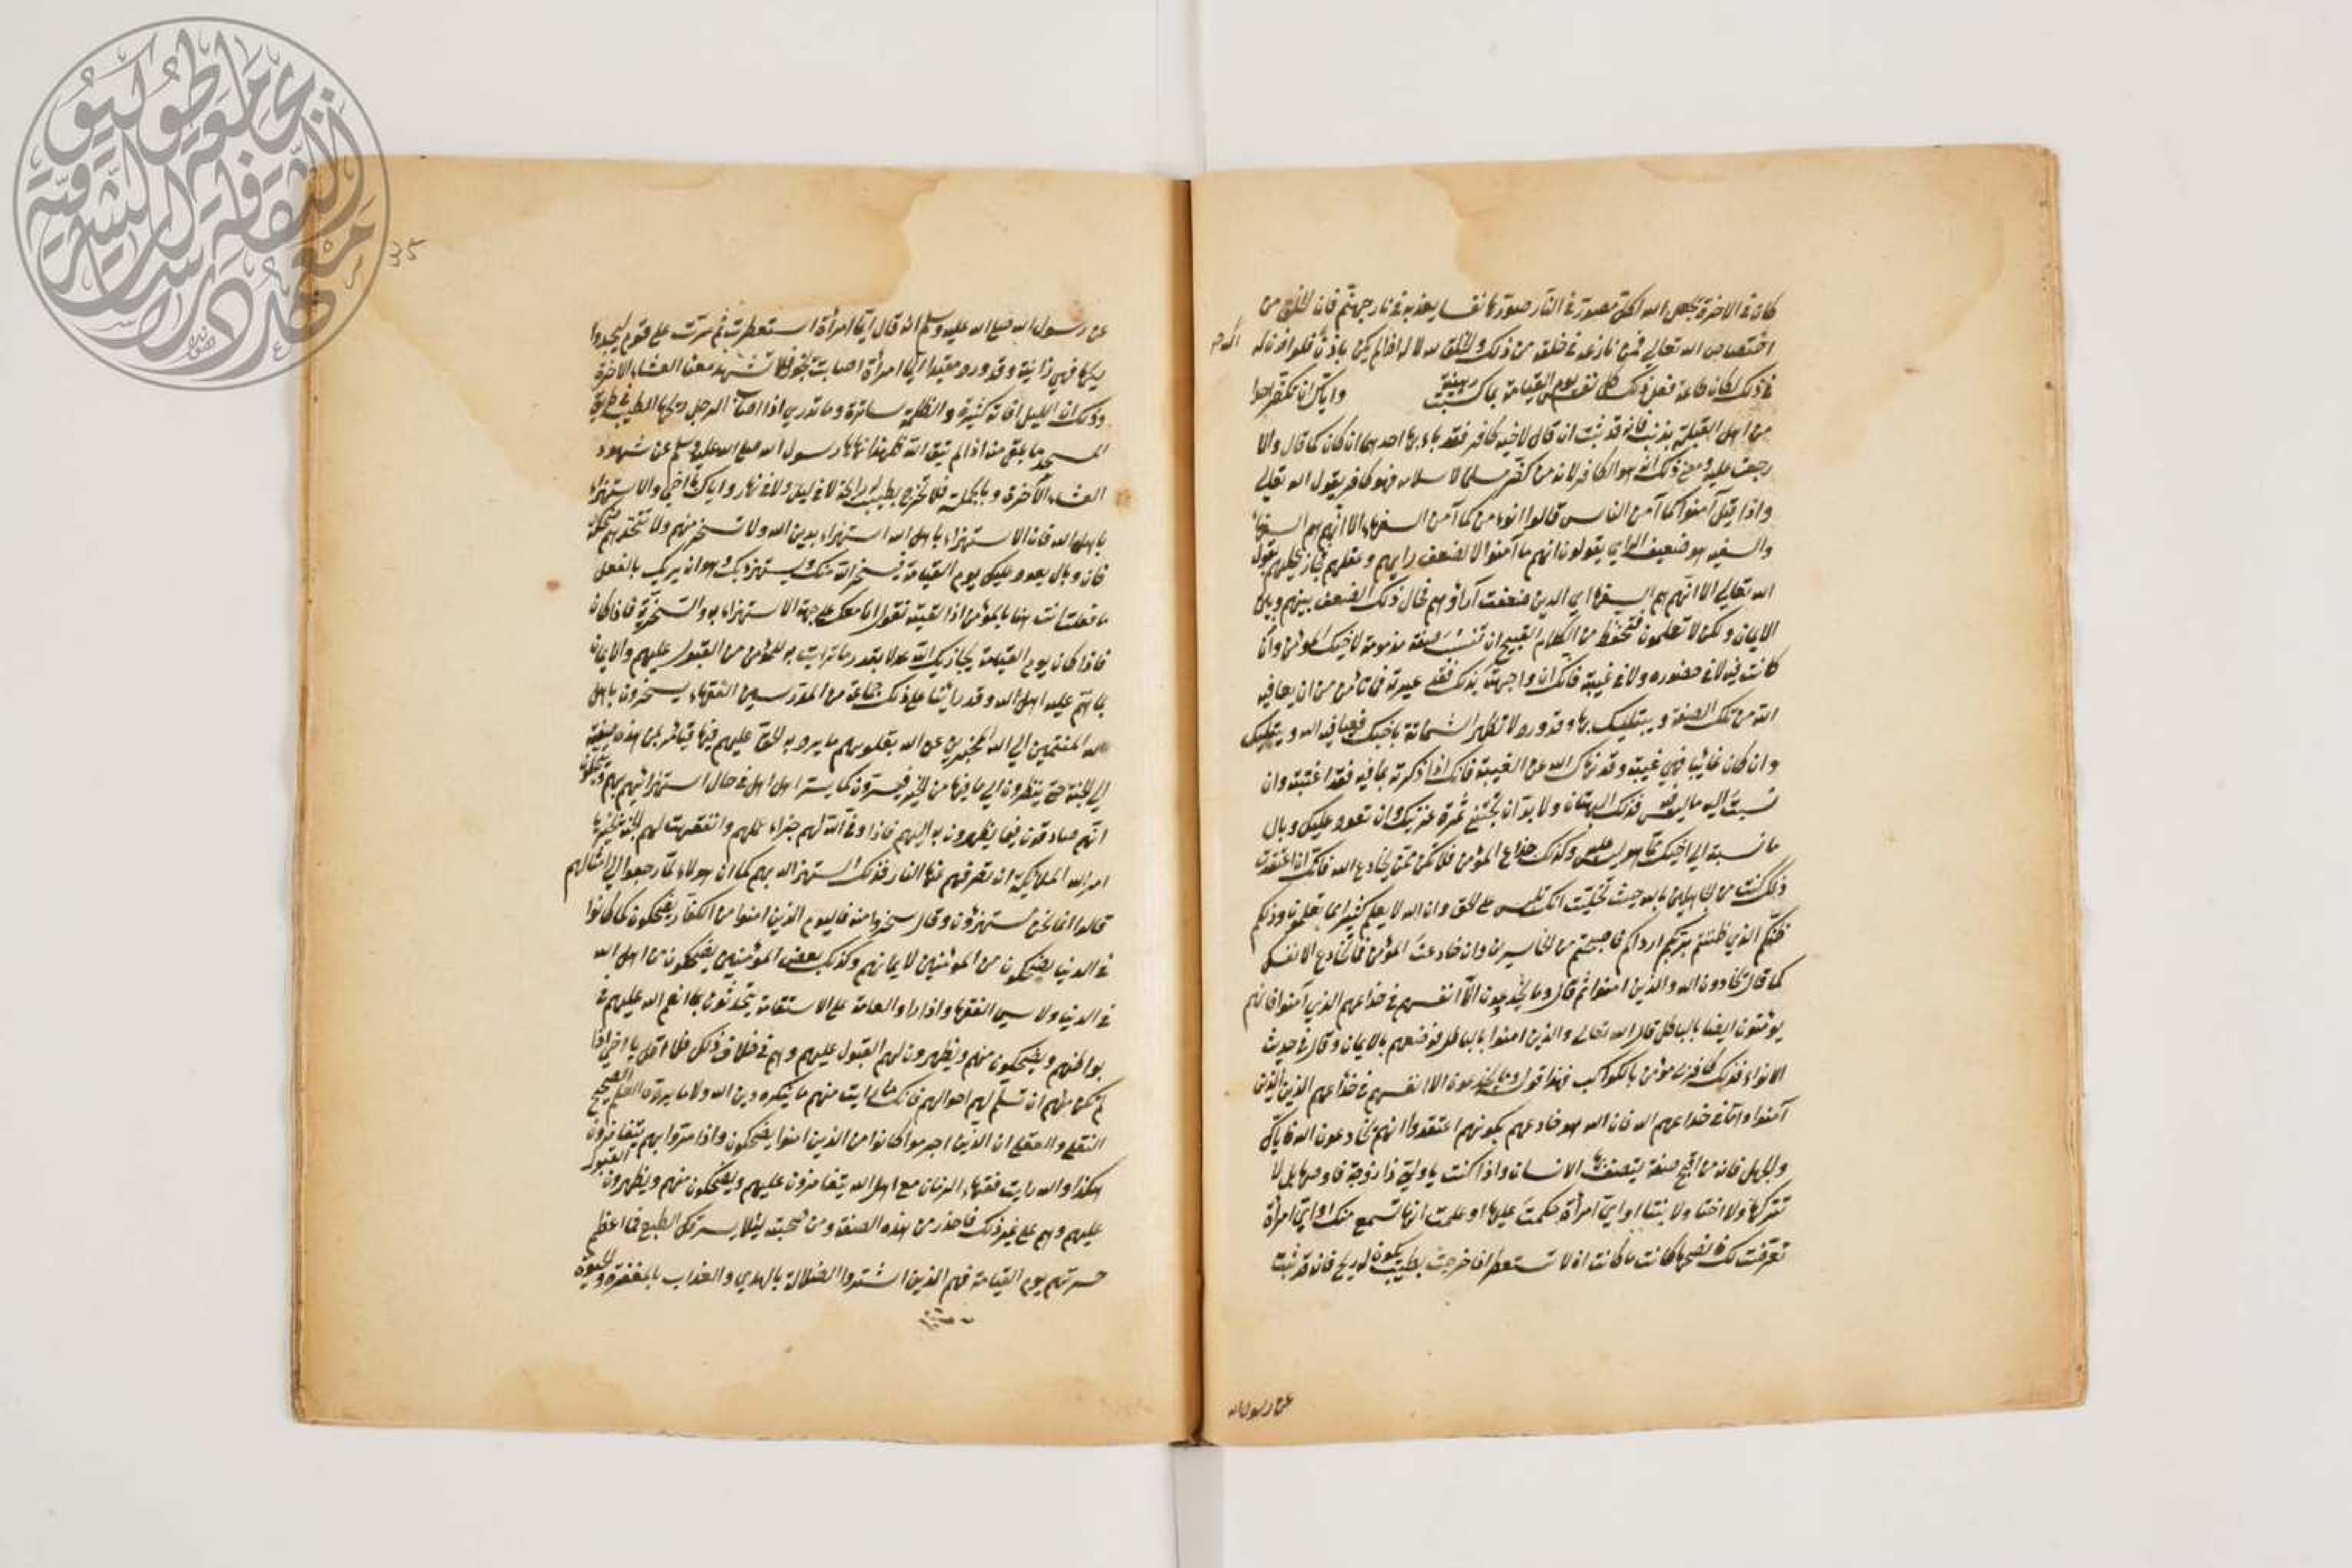 كان في الاخرة يجعل الله لكل مصور في النار صورتها نفسا يعذبه في نار جهنم فان الخلق من
اختصاص الله تعالى فمن نازعه في خلقه من ذلك والخلق لله لا له اذا لم يكن باذن فلو اذن له
في ذلك لكان طاعة فعل ذلك كل نفس يوم القيامة بما كسبت رهينة واياك ان تكفر احدا
من اهل القبلة بذنب فانه قد ثبت ان من قال لاخيه كافر فقد باء بها احدهما ان كان كما قال والا
رجعت عليه ومع ذلك انه هو الكافر لانه من كفر مسلما لاسلامه فهو كافر يقول الله تعالى
واذا قيل آمنوا كما آمن الناس قالوا انؤمن كما آمن السفهاء الا انهم هم السفهاء
والسفيه هو ضعيف الراي يقولون انهم ما آمنوا الا لضعف رايهم وعقلهم فجاز يقول
الله تعالى الا انهم هم السفهاء اي الذين ضعفت آراؤهم فحال ذلك الضعف بينهم وبين
الايمان ولكن لا تعلمون فتحفظ من الكلام القبيح ان تنسب صفة مذمومة لاخيك المؤمن وان
كانت فيه لا في حضوره ولا في غيبته فانك ان واجهته بذلك فقد عيرته فما تأمن من ان يعافيه
الله من تلك الصفة ويبتليك بها وقد ورد لا تظهر الشماتة باخيك فيعافيه الله ويبتليك
وان كان غائبا فهي غيبة وقد نهاك الله عن الغيبة فانك اذا ذكرته بما فيه فقد اغتبته وان
نسبت اليه ما ليس فيه فذلك البهتان ولا بد ان تجتني ثمرة غرسك وان تعود عليك وبال
ما نسبته الى اخيك مما هو ليس عليه وكذلك خداع المؤمن فلا تكن ممن يخادع الله فانك ان اعتقدت
ذلك كنت من الجاهلين بالله حيث تخيلت انك تلبس على الحق وان الله لا يعلم كثيرا مما تعملون وذلكم
ظنكم الذي ظننتم بربكم ارداكم فاصبحتم من الخاسرين وان خادعت المؤمن فما تخادع الا نفسك
كما قال يخادعون الله والذين امنوا ثم قال وما يخدعون الا انفسهم في خداعهم الذين آمنوا فانهم
يؤمنون ايضا بالباطل قال الله تعالى والذين امنوا بالباطل فوصفهم بالايمان وقال في حديث
الانواء فذلك كافر بي مؤمن بالكواكب فهذا قوله وما يخدعون الا انفسهم في خداعهم الذين
آمنوا واما في خداعهم الله فان الله هو خادعهم بكونهم اعتقدوا انهم يخادعون الله فاياك
والجهل فانه من اقبح صفة يتصف بها الانسان واذا كنت يا ولي ذا زوجة فاوصها بان لا
تتركها ولا اختا ولا بنتا او اي امرأة حكمت عليها او علمت انها تسمع منك او اي امرأة
تعرفت لك فانصحها كانت ما كانت ان لا تستعطر اذا خرجت بطيب يكون له ريح فانه قد ثبت
عن رسول الله
35
عن رسول الله صلى الله عليه وسلم انه قال ايما امرأة استعطرت ثم مرت على قوم ليجدوا
ريحها فهي زانية وقد ورد مقيدا ايما امرأة اصابت بخورا فلا تشهد معنا العشاء الاخرة
وذلك ان الليل افاته كثيرة والظلمة ساترة وما تدري اذا اصاب الرجل ريحها الطيب في طريق
المسجد ما يلقى منه اذا لم يتق الله فلهذا نهاها رسول الله صلى الله عليه وسلم عن شهود
العشاء الآخرة وبالجملة فلا تخرج بطيب له رائحة لا في ليل ولا في نهار واياك يا اخي والاستهزاء
باهل الله فان الاستهزاء باهل الله استهزاء بدين الله ولا تسخر منهم ولا تتخذهم ضحكة
فان وبال يعود عليك يوم القيامة فيسخر الله منك ويستهزئ بك وهو ان يريك بالفعل
ما فعلته انت هنا بالمؤمن اذا لقيته تقول انا معك على جهة الاستهزاء به والسخرية
فاذا كان يوم القيامة يجازيك الله عدلا بقدر ما ترايت به للمؤمن من القبول عليهم والايمان
بما هم عليه اهل الله وقد راينا على ذلك جماعة من المدرسين الفقهاء يسخرون باهل
الله المنتمين الى الله المخبرين عن الله بقلوبهم ما يرد به الحق عليهم فيها فيامر بمن هذه صفته
الى الجنة حتى ينظرون الى ما فيها من الخير فيسرون كما يسر اهل الله في حال استهزائهم بهم ويتخيلون
انهم صادقون فيما يظهرون به اليهم فاذا وفى الله لهم جزاء عملهم وانفقهت لهم الجنة بخيرها
امر الله الملائكة ان تصرفهم عنها الى النار فذلك استهزاء الله بهم كما ان هولاء لما رجعوا الى اشكالهم
قالوا انما نحن مستهزؤن وقال سخروا منه فاليوم الذين امنوا من الكفار يضحكون كما كانوا
في الدنيا يضحكون من المؤمنين لايمانهم وكذلك بعض المؤمنين يضحكون من اهل الله
في الدنيا ولا سيما الفقهاء اذا راوا العامة على الاستقامة يتحدثون بما انعم الله عليهم في
بواطنهم ويضحكون منهم ويظهرون لهم القبول عليهم وهم في خلاف ذلك فلا اقل يا اخي اذا
لم تكن منهم ان تسلم لهم احوالهم فانك ما رايت منهم ما ينكره دين الله ولا ما يرده العلم الصحيح
النقلي والعقلي ان الذين اجرموا كانوا من الذين امنوا يضحكون واذا مروا بهم يتغامزون
هكذا والله رايت فقهاء الزمان مع اهل الله يتغامزون عليهم ويضحكون منهم ويظهرون القبول
عليهم وهم على غير ذلك فاحذر من هذه الصفة ومن صحبته لئلا يسرقك الطبع فما اعظم
حسرتهم يوم القيامة فهم الذين اشتروا الضلالة بالهدى والعذاب بالمغفرة والحيوة
جامعة طوكيو
معهد دراسات الثقافة الشرقية